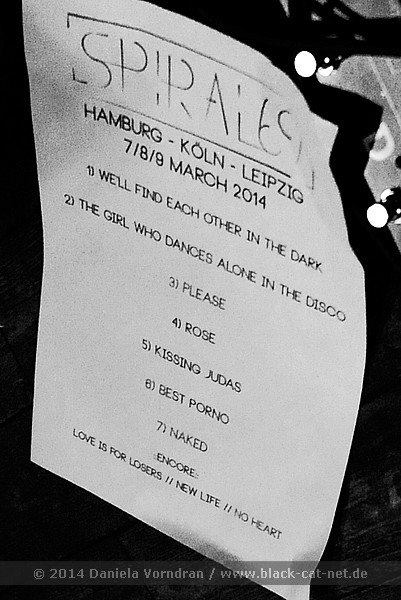 SPIRALES
HAMBURG - KÖLN - LEIPZIG
7/8/9 MARCH 2014
1) WE'LL FIND EACH OTHER IN THE DARK
2) THE GIRL WHO DANCES ALONE IN THE DISCO
3) PLEASE
4) ROSE
5) KISSING JUDAS
6) BEST PORNO
7) NAKED
:ENCORE:
LOVE IS FOR LOSERS // NEW LIFE // NO HEART
© 2014 Daniela Vorndran / www.black-cat-net.de